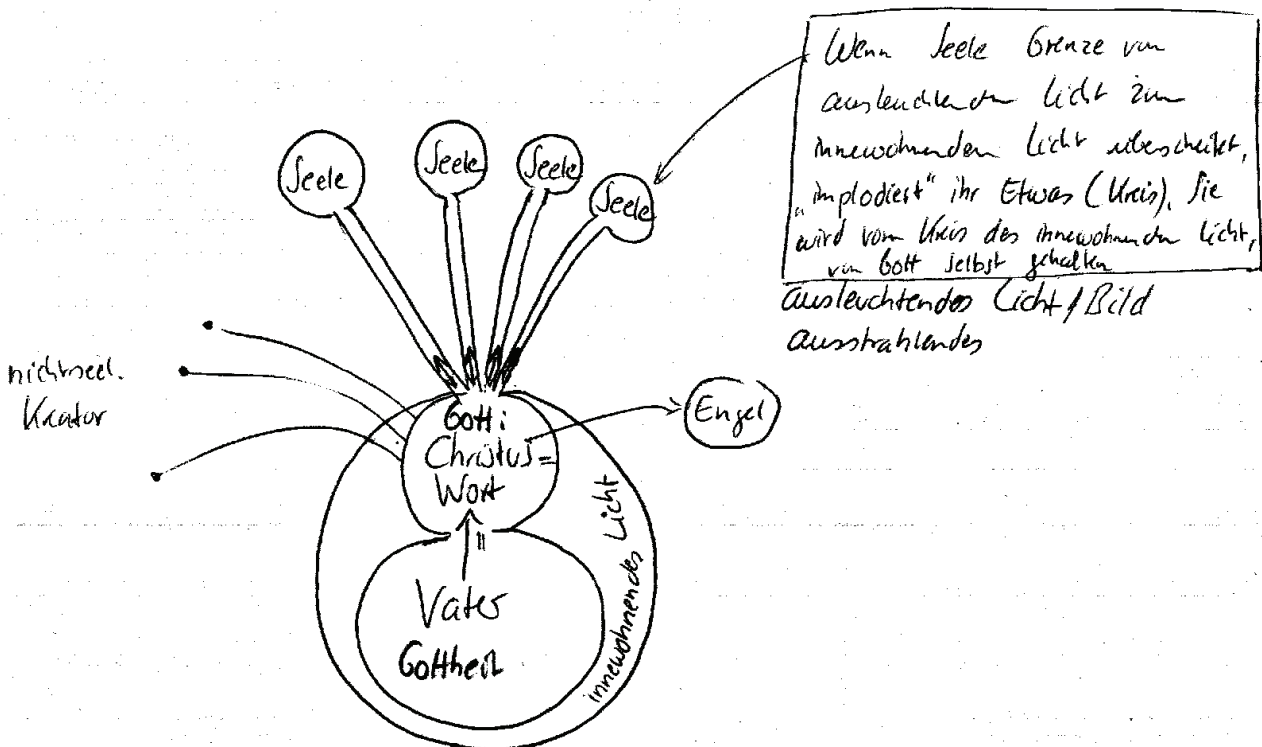 Wenn Seele Grenze von
ausleuchtenden Licht zum
innewohnenden Licht überscheitet,
„implodiert" ihr Etwas (Kreis). Sie
wird vom Kreis des innewohnenden Licht,
von Gott selbst gehalten
ausleuchtendes Licht / Bild
ausstrahlendes
Seele
Seele
Seele
Seele
nichtseel.
Kreatur
Engel
Gott:
Christus =
Wort
innewohnendes Licht
Vater
Gottheit